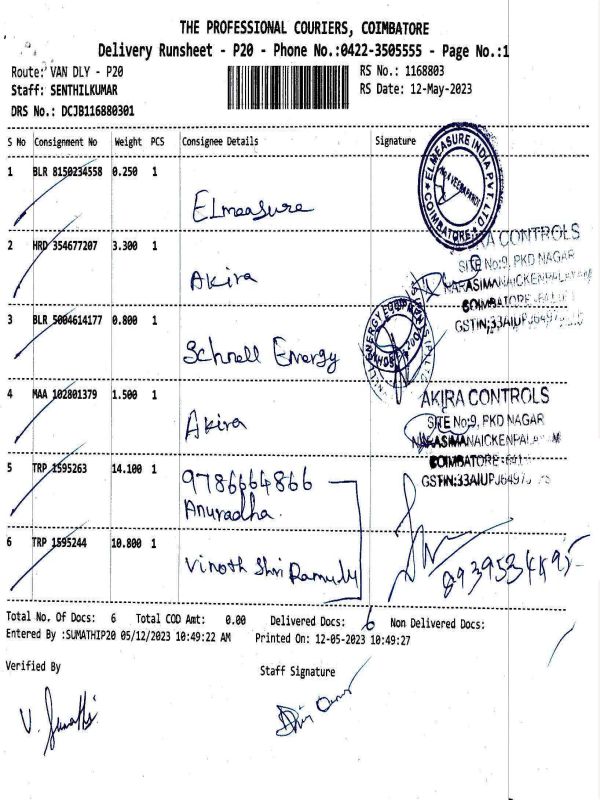 THE PROFESSIONAL COURIERS, COIMBATORE
Delivery Runsheet - P20 - Phone No.:0422-3505555 - Page No.:1
Route: VAN DLY - P20 RS No.: 1168803
Staff: SENTHILKUMAR RS Date: 12-May-2023
DRS No.: DCJB116880301
S No Consignment No Weight PCS Consignee Details Signature
1 BLR 8150234558 0.250 1
Elmeasure
ELMEASURE INDIA PVT. LTD
COIMBATORE
2 HRD 354677207 3.300 1
Akira
CONTROLS
SITE No:9, PKD NAGAR
COIMBATORE
3 BLR 5004614177 0.800 1
Schnell Energy
ENERGY
4 MAA 102801379 1.500 1
Akira
AKIRA CONTROLS
SITE No:9, PKD NAGAR
NARASIMANAICKENPALAYAM
COIMBATORE
5 TRP 1595263 14.100 1
9786664866
Anuradha.
6 TRP 1595244 10.800 1
Vinoth Shri
Total No. Of Docs: 6 Total COD Amt: 0.00 Delivered Docs: 6 Non Delivered Docs:
Entered By :SUMATHIP20 05/12/2023 10:49:22 AM Printed On: 12-05-2023 10:49:27
Verified By Staff Signature
V. Sumathi